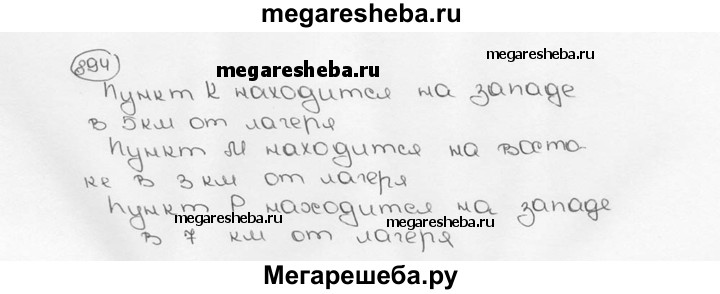 megaresheba.ru
894)
megaresheba.ru
megaresheba.ru
Пункт К находится на западе
в 5 км от лагеря
Пункт М находится на восто-
ке в 3 км от лагеря
Пункт Р находится на западе
megaresheba.ru
megaresheba.ru
в 7 км от лагеря
Мегарешеба.ру